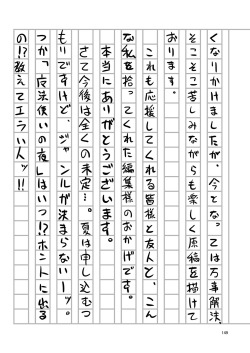 くなりかけましたが、今となっては万事解決。
そこそこ苦しみながらも楽しく原稿を描いて
おります。
これも応援してくれる皆様と友人と、こん
な私を拾ってくれた編集様のおかげです。
本当にありがとうございます。
さて今後は全くの未定…。夏は申し込むつ
もりですけど、ジャンルが決まらないーッ。
つか「魔法使いの夜」はいつ!?ホントに出る
の!?教えてエライ人ッ!!